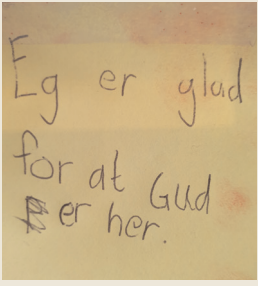 Eg er glad
for at Gud
er her.